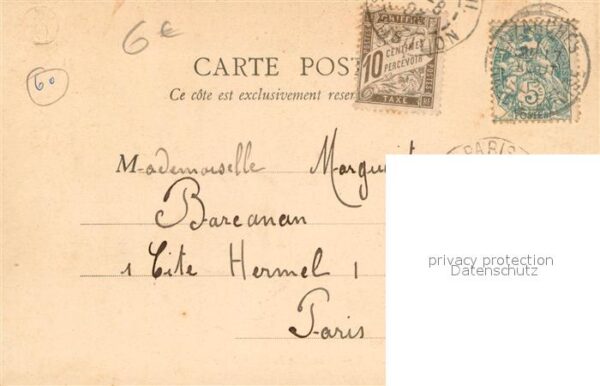 6€
60
10
CENTIMES
A PERCEVOIR
TAXE
5
POSTES
CARTE POST
Ce côte est exclusivement reser
PARIS
Mademoiselle Marguerit
Barcanan
1 Cite Hermel 1
Paris
privacy protection
Datenschutz